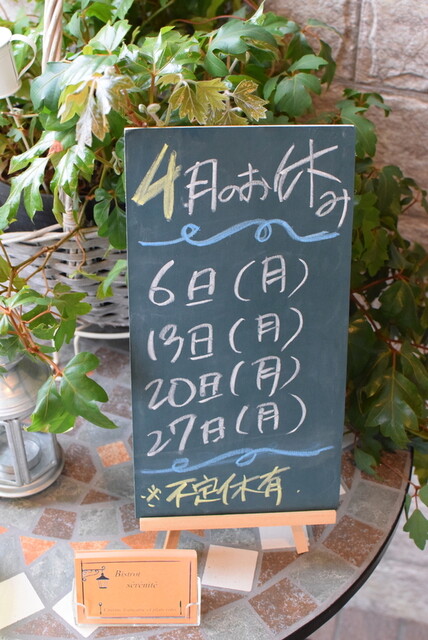 4月のお休み
6日(月)
13日(月)
20日(月)
27日(月)
※不定休有.
Bistrot
sérénité